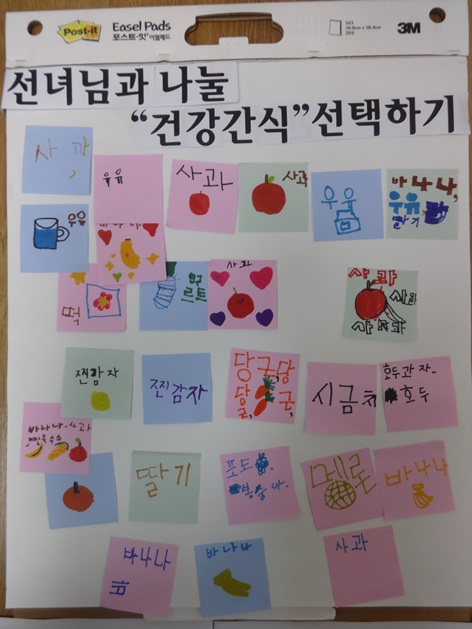 Post-it
Easel Pads
포스트-잇® 이젤패드
563
3M
선녀님과 나눌
"건강간식" 선택하기
사과
우유
사과
사과
우유
바나나,
우유,
딸기,
우유
바나나
떡
요구르트
사과
사과
사과
사과
찐감자
찐감자
당근,당
당
근,
시금치
호두과자-
호두
바나나, 사과
찐옥수수
딸기
포도
복숭아
메론
바나나
바나나
바나나
사과